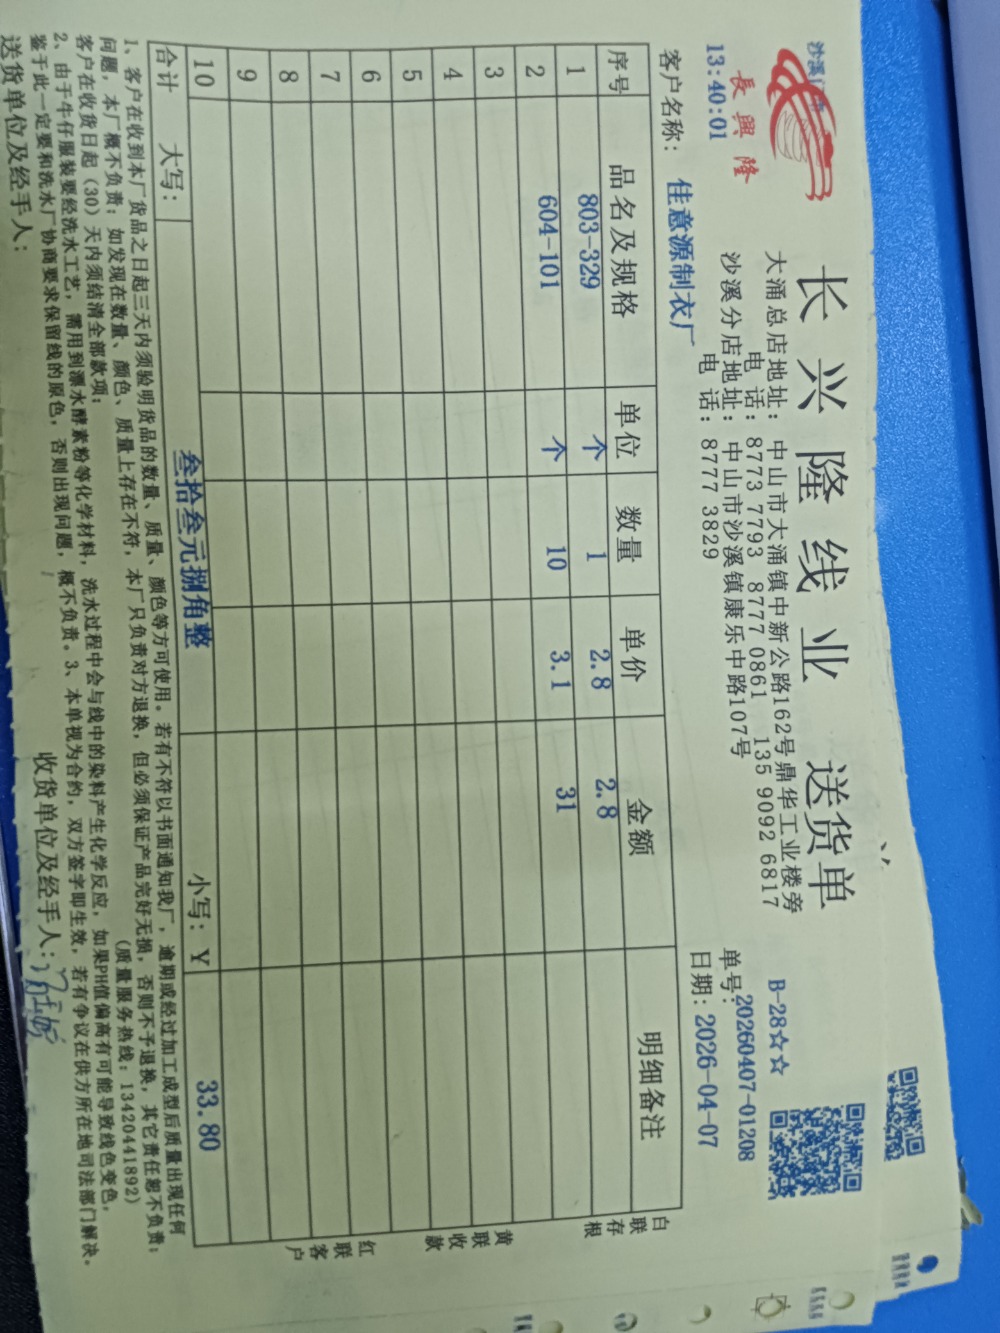 長興隆
长兴隆线业 送货单
大涌总店地址：中山市大涌镇中新公路162号鼎华工业楼旁
电 话：8773 7793 8777 0861 135 9092 6817
沙溪分店地址：中山市沙溪镇康乐中路107号
电 话：8777 3829
B-28☆☆
单号：20260407-01208
日期：2026-04-07
13:40:01
客户名称：佳意源制衣厂
序号 品名及规格 单位 数量 单价 金额 明细备注
1 803-329 个 1 2.8 2.8
2 604-101 个 10 3.1 31
3
4
5
6
7
8
9
10
合计 大写：叁拾叁元捌角整 小写：Y 33.80
白联存根
黄联收款
红联客户
1、客户在收到本厂货品之日起三天内须验明货品的数量、质量、颜色等方可使用。若有不符以书面通知我厂，逾期或经过加工成型后质量出现任何
问题，本厂概不负责；如发现在数量、颜色、质量上存在不符，本厂只负责对方退换，但必须保证产品完好无损，否则不予退换，其它责任恕不负责；
客户在收货日起（30）天内须结清全部款项；
（质量服务热线：13420441892）
2、由于牛仔服装要经洗水工艺，需用到漂水酵素粉等化学材料，洗水过程中会与线中的染料产生化学反应，如果PH值偏高有可能导致线色变色，
鉴于此一定要和洗水厂协商要求保留线的原色，否则出现问题，概不负责。3、本单视为合约，双方签字即生效，若有争议在供方所在地司法部门解决。
送货单位及经手人：
收货单位及经手人：